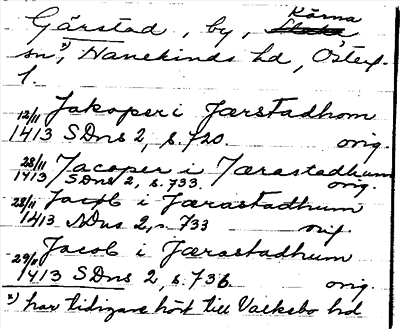 Kärna
Gärstad, by, Slaka
sn*), Hanekinds hd, Österg.
1.
Jakoper i Jærstadhom
12/11 1413 SDns 2, s. 720. orig.
Jacoper i Jærastadhum
28/11 1413 SDns 2, s. 733. orig.
Jacob i Jærastadhum
28/11 1413 SDns 2, s. 733 orig.
Jacob i Jærastadhum
29/11 1413 SDns 2, s. 736. orig.
*) har tidigare hört till Valkebo hd